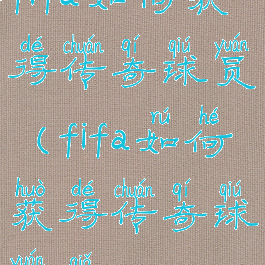 fifa如何获
dé chuán qí qiú yuán
得传奇球员
rú hé
(fifa如何
huò dé chuán qí qiú
获得传奇球